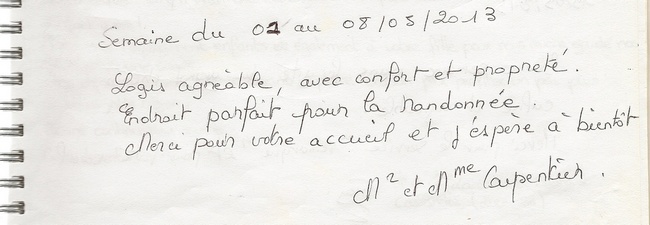 Semaine du 01 au 08/05/2013
Logis agréable, avec confort et propreté.
Endroit parfait pour la randonnée.
Merci pour votre accueil et j'espère à bientôt
Mr et Mme Carpentier.